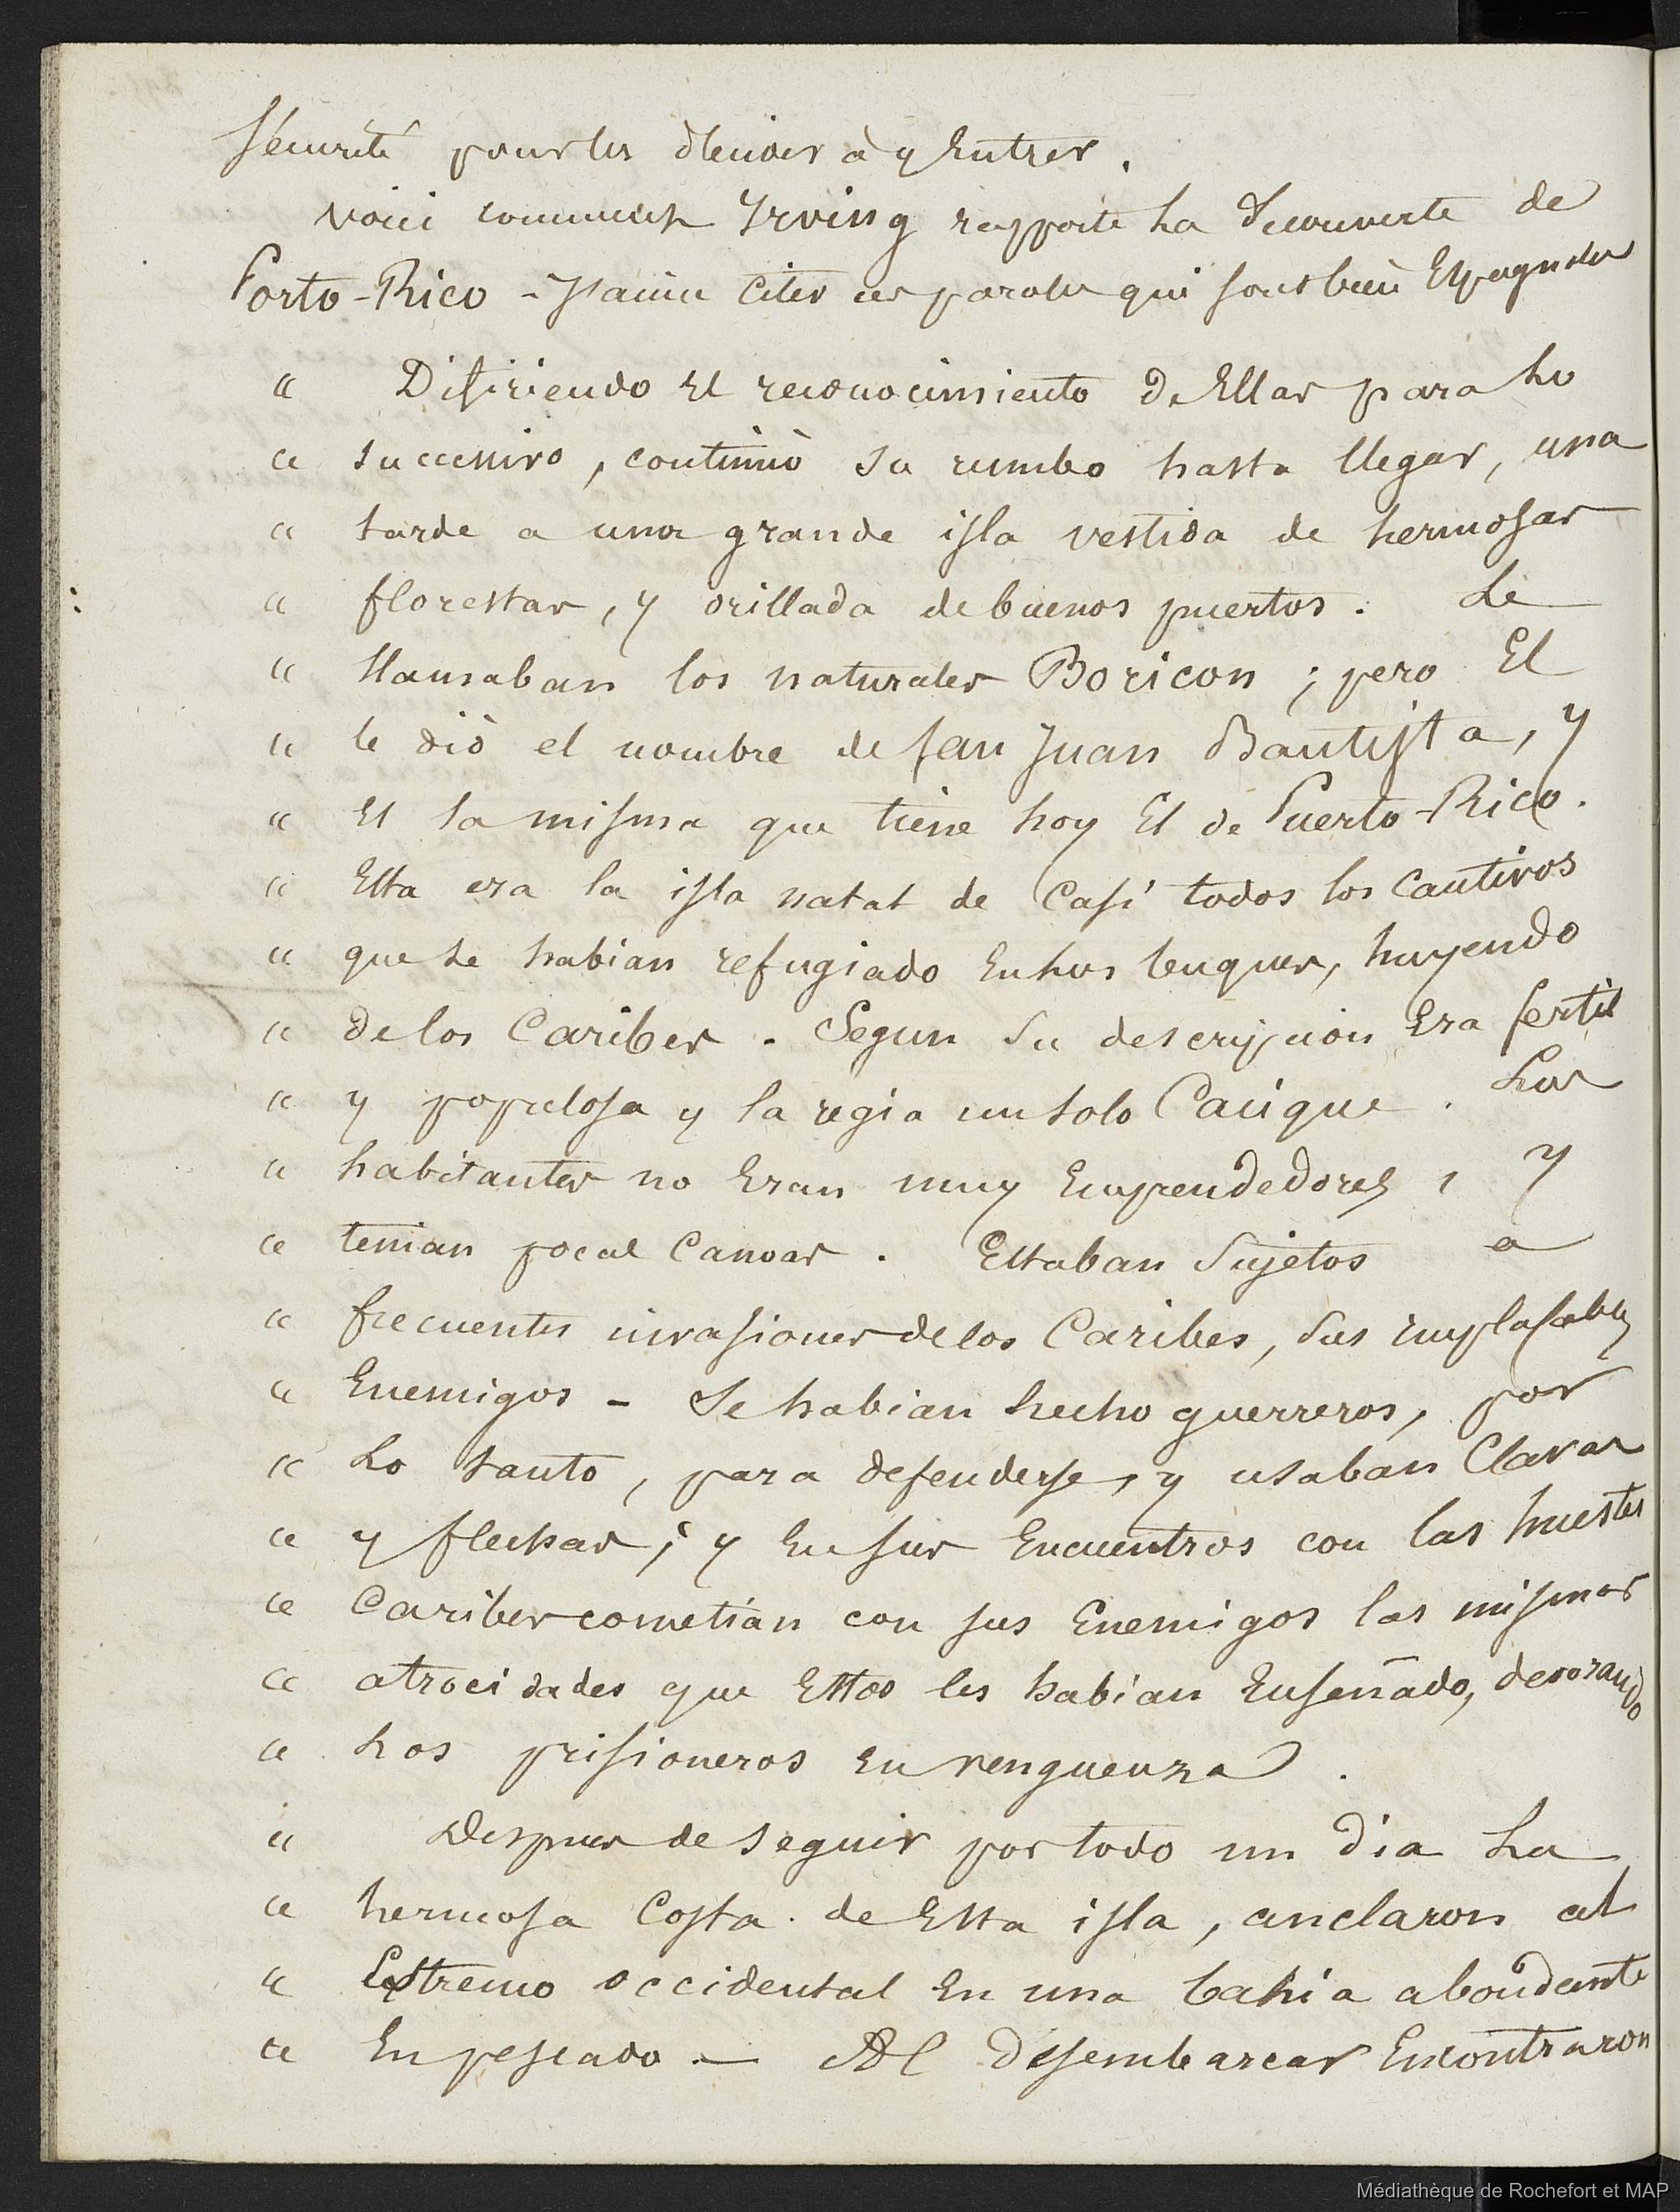 sécurité pour les décider à y Entrer.
Voici comment Irving rapporte la decouverte de
Porto-Rico - J'aime citer ces paroles qui sont bien Espagnoles
" Difiriendo El reconocimiento de Ellas para lo
" successivo, continuò su rumbo hasta llegar, una
" tarde a una grande isla vestida de hermosas
" florestas, y orillada de buenos puertos. Le
" llamaban los naturales Boricon ; pero El
" le diò el nombre de san Juan Bautista, y
" Es la misma que tiene hoy El de Puerto-Rico.
" Esta era la isla natal de Casi todos los Cautivos
" que se habian refugiado En los buques, huyendo
" de los Caribes. Segun su descripcion Era fertil
" y populosa y la regia un solo Cacique. Los
" habitantes no Eran muy Emprendedores, y
" tenian pocas Canoas. Estaban Sujetos a
" frecuentes invasiones de los Caribes, sus implasables
" Enemigos - Se habian hecho guerreros, por
" Lo tanto, para defenderse, y usaban Clavas
" y flechas ; y En sus Encuentros con las huestes
" Caribes cometian con sus Enemigos las mismas
" atrocidades que Estos les habian Enseñado, devorando
" Los prisioneros En venguenza.
" Despues de seguir por todo un dia La
" hermosa Costa de Esta isla, anclaron al
" Estremo occidental En una bahia aboudante
" En pescado. — Al Desembarcar Encontraron
Médiathèque de Rochefort et MAP